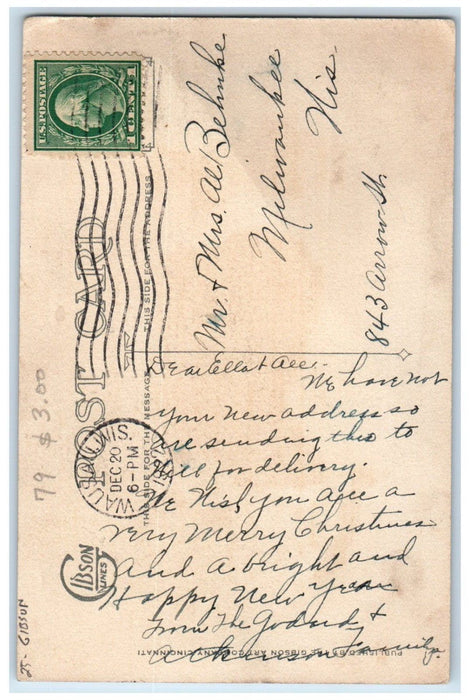 U.S. POSTAGE
1 CENT 1
POST CARD
THIS SIDE FOR THE ADDRESS
THIS SIDE FOR THE MESSAGE
WAUSAU, WIS.
DEC 20
6-PM
Mr. & Mrs. Al Behnke
Milwaukee
Wis.
843 Arrow St.
Dear Ella & All:
We have not
your new address so
are sending this to
for delivery.
We Wish you all a
very Merry Christmas
and a bright and
Happy New Year
From The &
Family
GIBSON
LINES
PUBLISHED BY THE GIBSON ART COMPANY CINCINNATI
79 $3.00
25- GIBSON